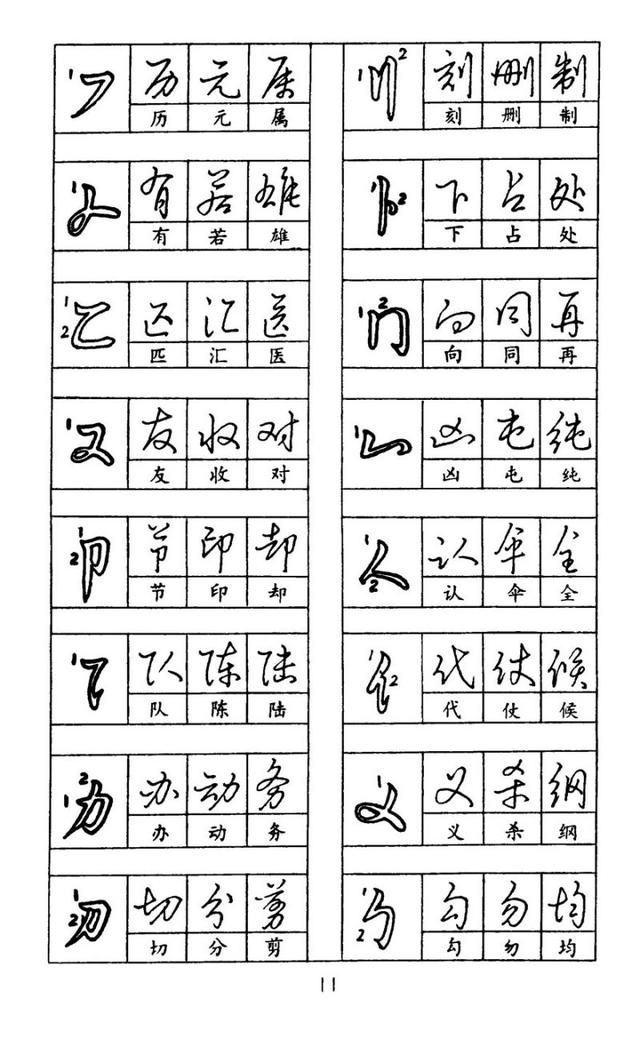 厂 历 元 属
历 元 属
ナ 有 若 雄
有 若 雄
匚 匹 汇 医
匹 汇 医
又 友 收 对
友 收 对
卩 节 印 却
节 印 却
阝 队 陈 陆
队 陈 陆
力 办 动 务
办 动 务
刀 切 分 剪
切 分 剪
刂 刻 删 制
刻 删 制
卜 下 占 处
下 占 处
冂 向 同 再
向 同 再
凵 凶 屯 纯
凶 屯 纯
人 认 伞 全
认 伞 全
亻 代 仗 候
代 仗 候
乂 义 杀 纲
义 杀 纲
勹 勾 勿 均
勾 勿 均
11